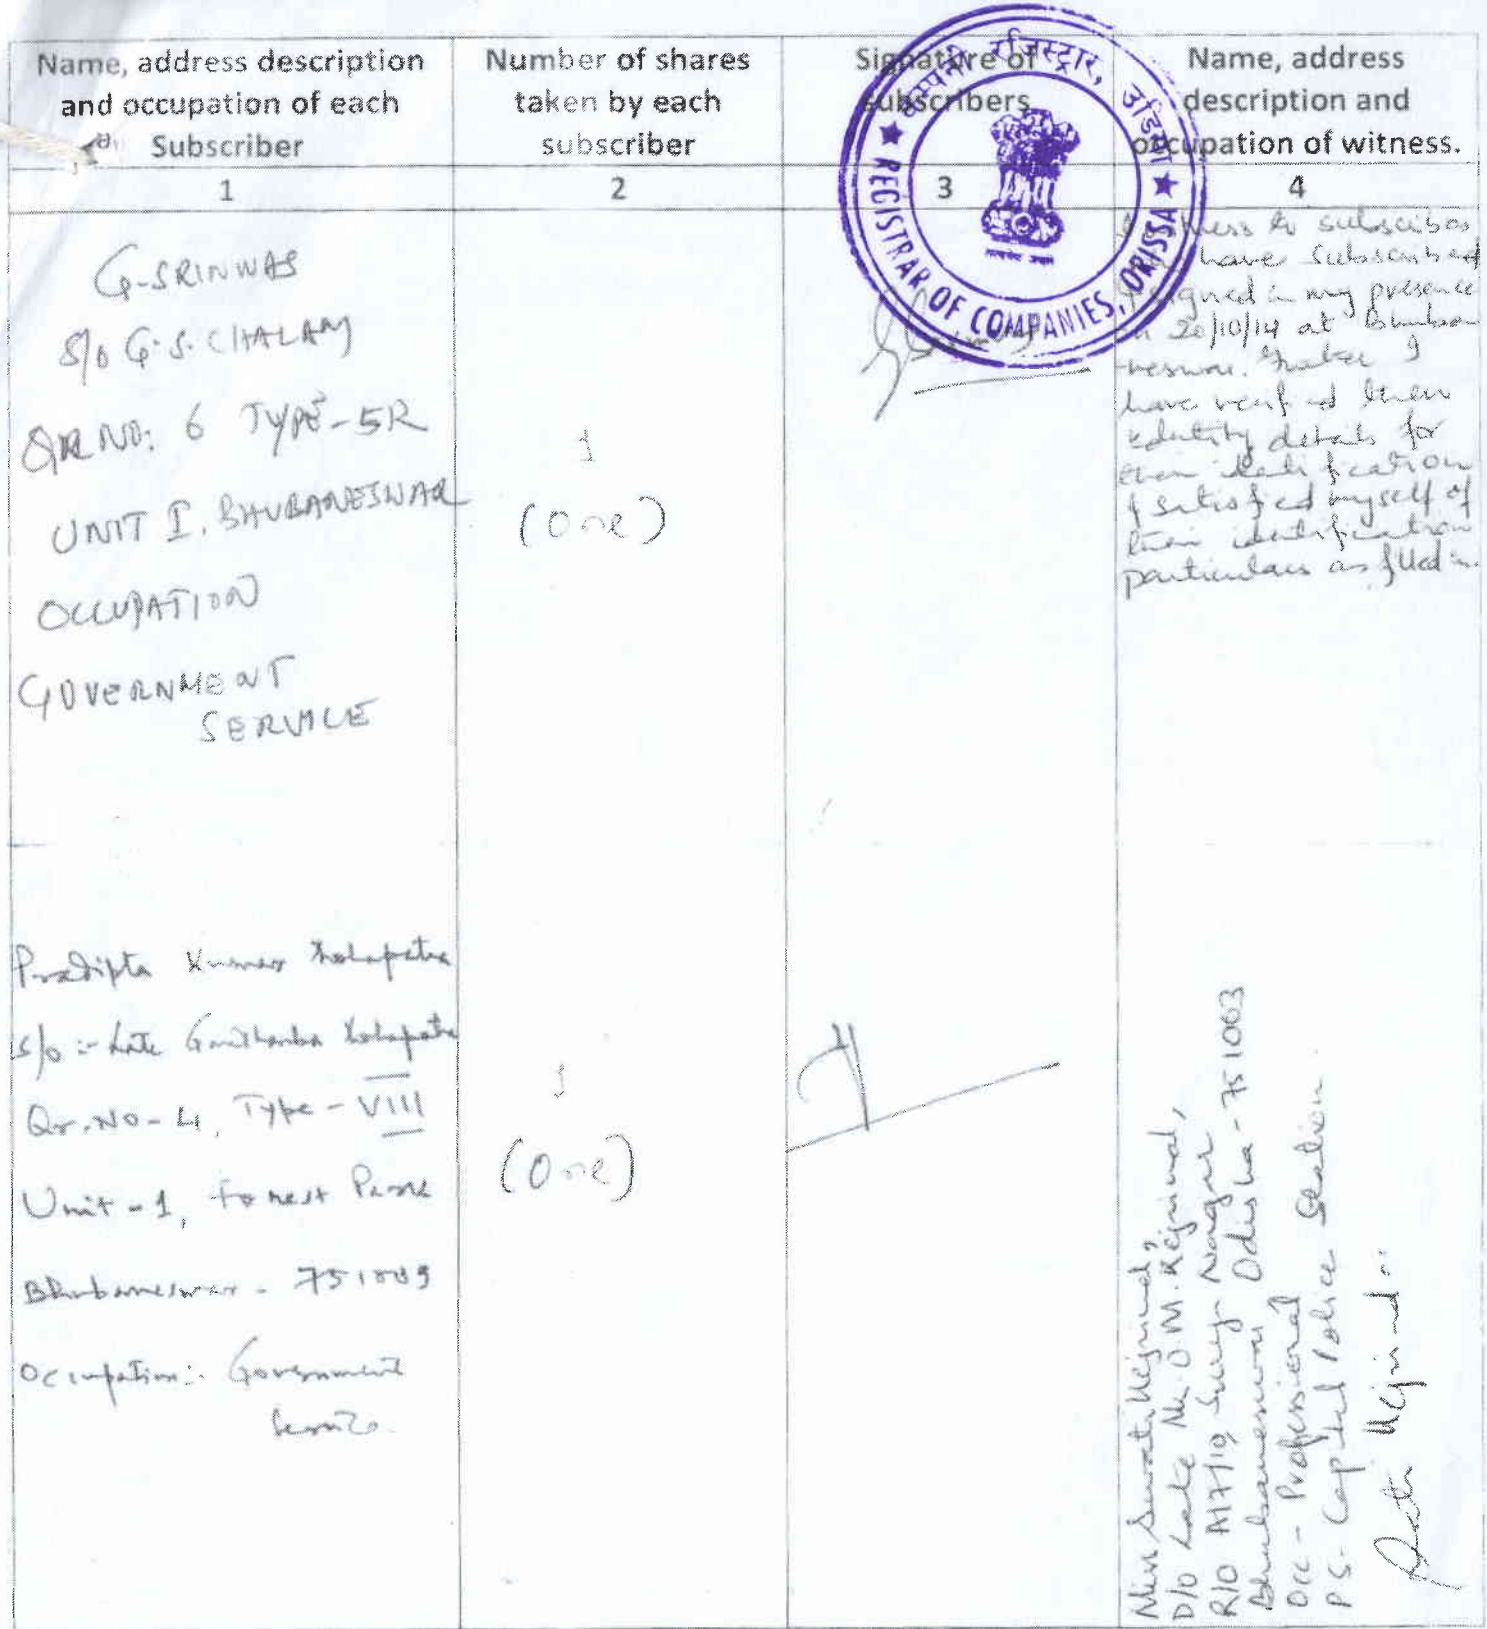 Name, address description
and occupation of each
Subscriber
Number of shares
taken by each
subscriber
Signature of
subscribers
Name, address
description and
occupation of witness.
1
2
3
4
कम्पनी रजिस्ट्रार, उडिसा
★ REGISTRAR OF COMPANIES, ORISSA ★
G-SRINWAS
S/o G.S. CHALAM
QR NO: 6 TYPE-5R
UNIT I, BHUBANESWAR
OCCUPATION
GOVERNMENT
SERVICE
1
(One)
witness to subscribers
have subscribed
signed in my presence
20/10/14 at Bhuban
-neswar. Further I
have verified their
identity details for
their identification
& satisfied myself of
their identification
particulars as filled in.
Pradipta Kumar
S/o :- Late
Qr. No-4, Type-VIII
Unit-1, Forest Park
Bhubaneswar -
Occupation:- Government
Service.
1
(One)
Miss Swati Kejriwal,
D/O Late Mr. O.M. Kejriwal,
R/O A17/10, Surya Nagar
Bhubaneswar Odisha - 751003
Occ - Professional
P.S - Capital Police Station.